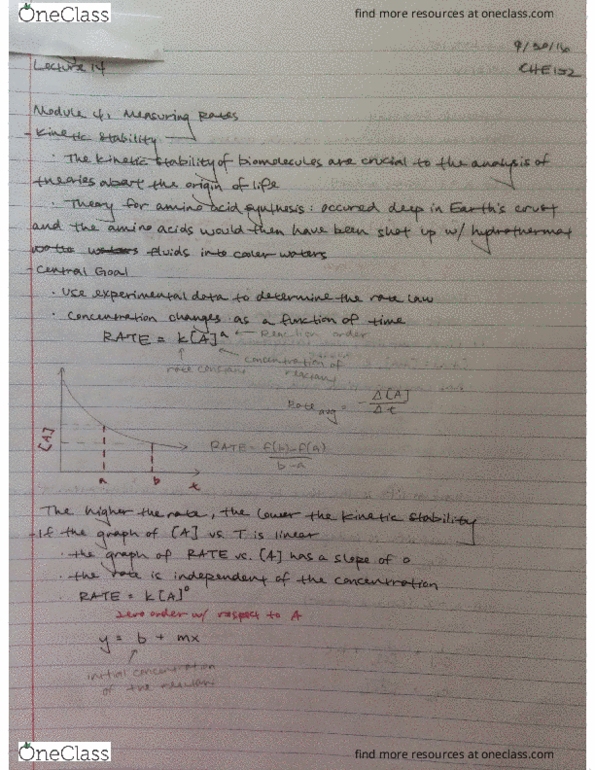 OneClass
find more resources at oneclass.com
9/30/16
Lecture 14
CHE 132
Module 4: Measuring Rates
- Kinetic Stability
· The kinetic stability of biomolecules are crucial to the analysis of
theories about the origin of life
· Theory for amino acid synthesis: occured deep in Earth's crust
and the amino acids would then have been shot up w/ hydrothermal
waters fluids into cooler waters
- Central Goal
· use experimental data to determine the rate law
· concentration changes as a function of time
RATE = k[A]ᵃ ← reaction order
rate constant
concentration of
reactant
Rate avg = - Δ[A]
Δt
[A]
RATE = f(b) - f(a)
b - a
a b t
The higher the rate, the lower the kinetic stability
- If the graph of [A] vs. T is linear
· the graph of RATE vs. [A] has a slope of 0
· the rate is independent of the concentration
· RATE = k[A]⁰
zero order w/ respect to A
y = b + mx
initial concentration
of the reactant
OneClass
find more resources at oneclass.com